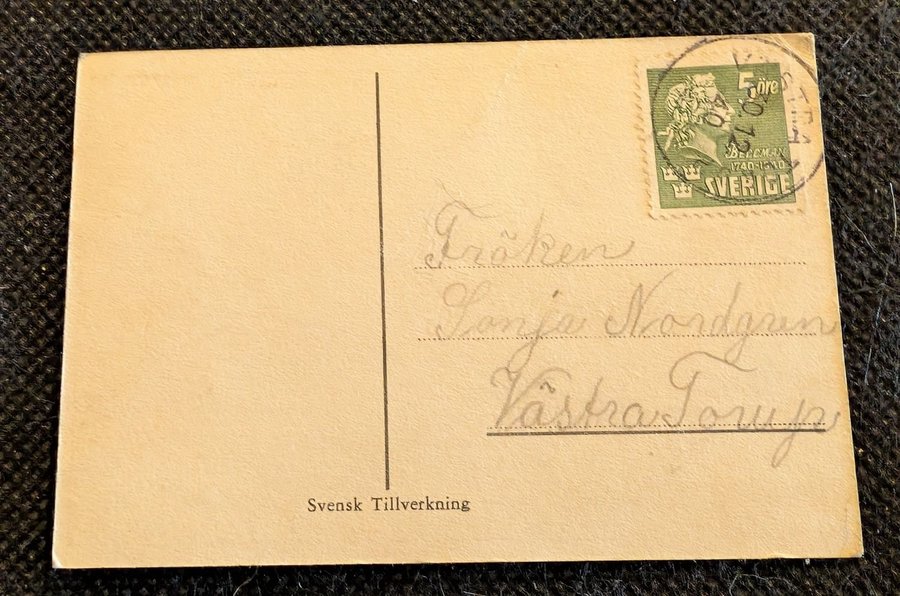 5 öre
BELLMAN
1740-1940
SVERIGE
VÄSTRA
12
40
Fröken
Sonja Nordgren
Västra Torup
Svensk Tillverkning